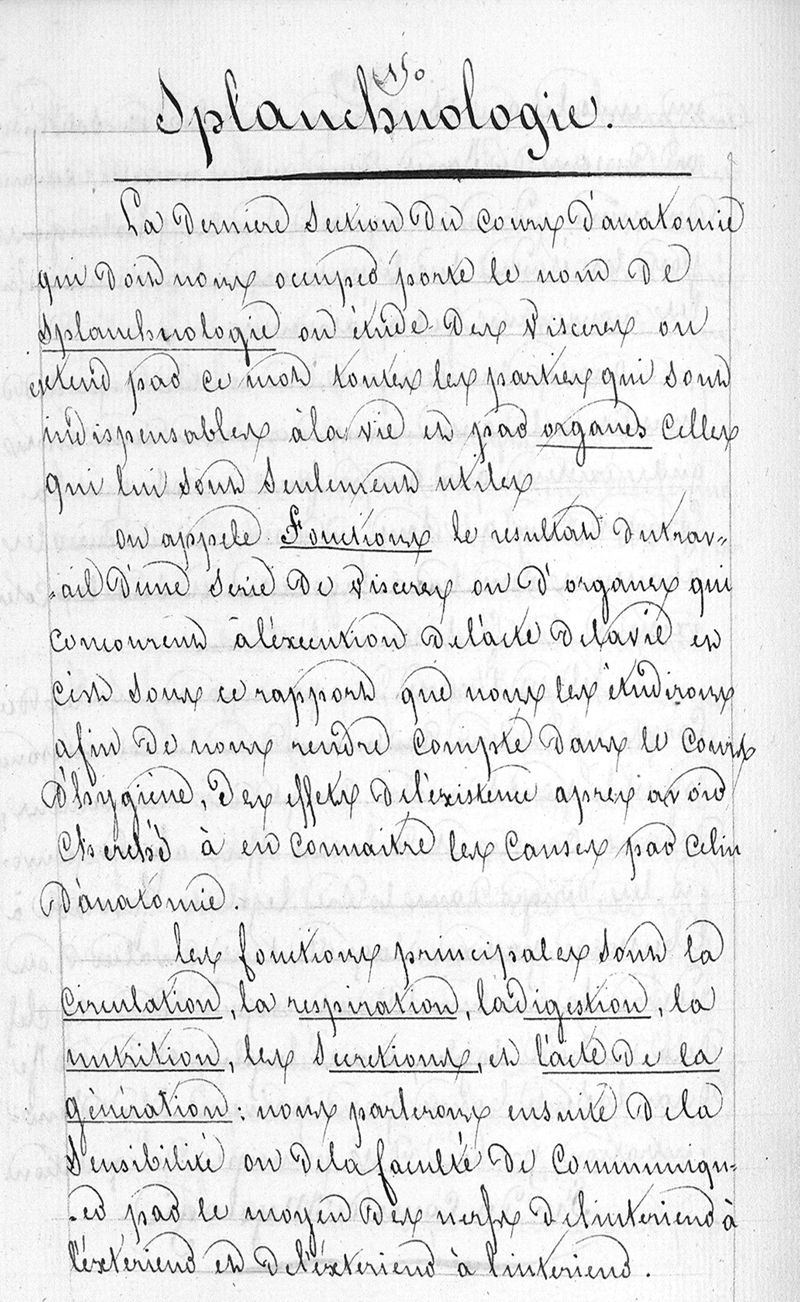 150
Splanchnologie.
La derniere section du cours d'anatomie
qui doit nous occuper porte le nom de
splanchnologie ou étude des visceres on
extend par ce mot toutes les parties qui sont
indispensables à la vie et par organes celles
qui lui sont seulement utiles
on appele Fonctions le resultat du trav-
-ail d'une serie de visceres ou d'organes qui
concourent à l'éxecution de l'acte de la vie et
c'est sous ce rapport que nous les étudirons
afin de nous rendre compte dans le cours
d'hygiène, des effets de l'éxistence apres avoir
cherché à en connaitre les causes par celui
d'anatomie.
les fonctions principales sont la
circulation, la respiration, la digestion, la
nutrition, les secretions, et l'acte de la
génération : nous parlerons ensuite de la
sensibilité ou de la faculté de communiqu-
-er par le moyen des nerfs de l'interieur à
l'éxterieur et de l'éxterieur à l'interieur.